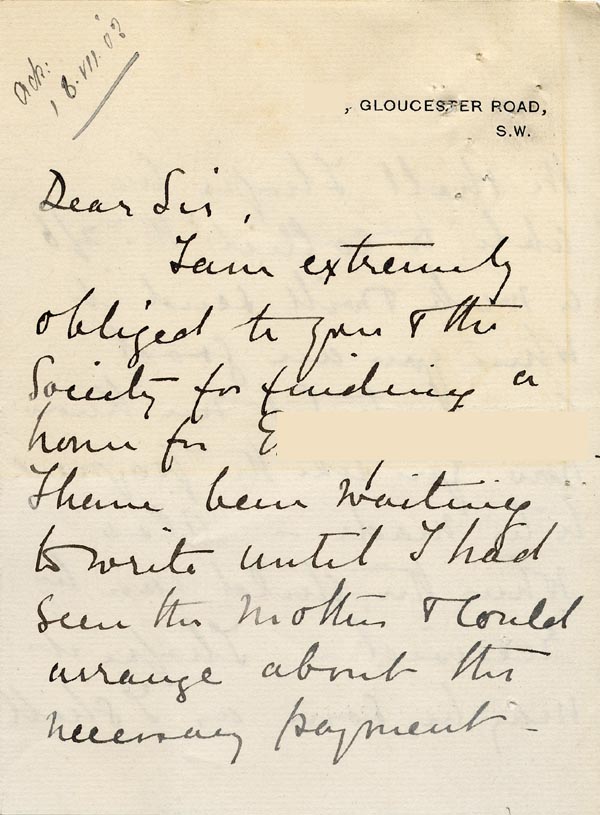 Ack:
18.VII.03
, GLOUCESTER ROAD,
S.W.
Dear Sir,
I am extremely
obliged to you & the
Society for finding a
home for E
I have been waiting
to write until I had
seen the Mother & could
arrange about the
necessary payment -